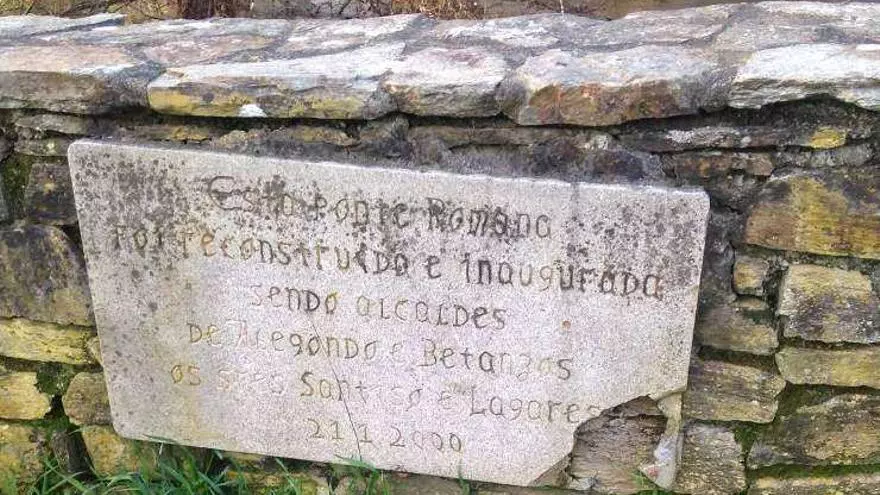 Esta Ponte Romana
Foi reconstruida e inaugurada
sendo alcaldes
de Abegondo e Betanzos
os sres Santiso e Lagares
21 1 2000